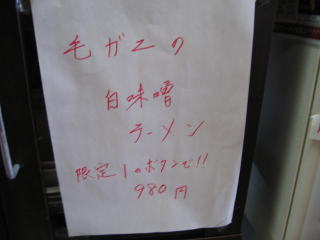 毛ガニの
白味噌
ラーメン
限定1のボタンで!!
980円